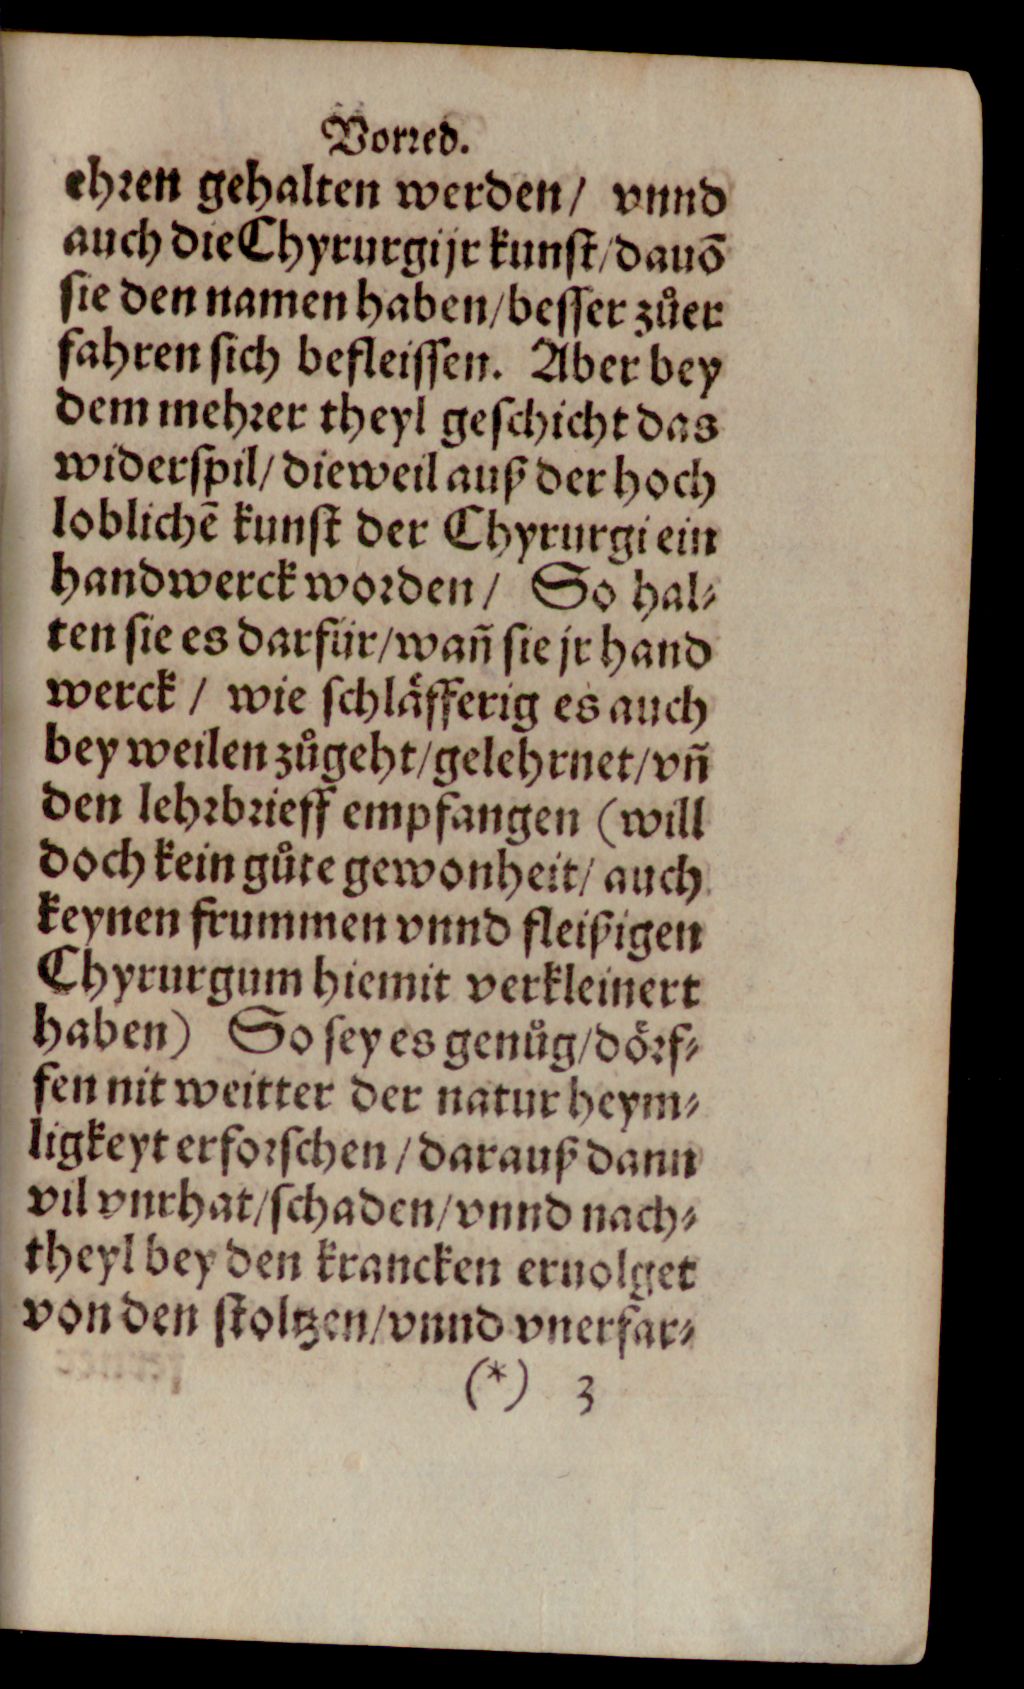 Vorred.
ehren gehalten werden/ vnnd
auch die Chyrurgijr kunst/dauõ
sie den namen haben/besser zůer
fahren sich befleissen. Aber bey
dem mehrer theyl geschicht das
widerspil/dieweil auß der hoch
loblichẽ kunst der Chyrurgi ein
handwerck worden/ So hal⸗
ten sie es darfür/wañ sie jr hand
werck/ wie schläfferig es auch
bey weilen zůgeht/gelehrnet/vñ
den lehrbrieff empfangen (will
doch kein gůte gewonheit/ auch
keynen frummen vnnd fleißigen
Chyrurgum hiemit verkleinert
haben) So sey es genůg/dörf⸗
fen nit weitter der natur heym⸗
ligkeyt erforschen/darauß dann
vil vnrhat/schaden/vnnd nach⸗
theyl bey den krancken eruolget
von den stoltzen/vnnd vnerfar⸗
(*) 3